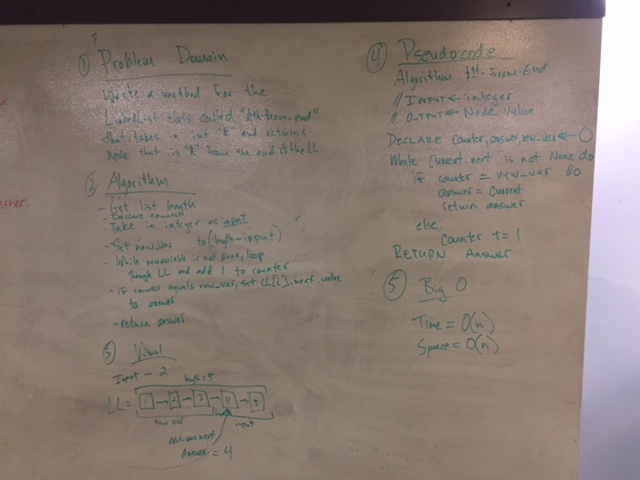 ① Problem Domain
Write a method for the
LinkedList class called "kth-from-end"
that takes in int "k" and returns
node that is "k" from the end of the LL.
② Algorithm
- Get list length
- Declare counter
- Take in integer as input
- Set new_var to (length-input)
- While is not None, loop
through LL and add 1 to counter
- if counter equals new_var, set LL[i].next value
to answer
- return answer
③ Visual
Input - 2
length = 5
LL = 1 → 2 → 3 → 4 → 5
new var
input
Answer = 4
④ Pseudocode
Algorithm kth-from-End
// INPUT ← integer
// OUTPUT ← Node value
DECLARE counter, answer, new_var ← 0
While Current.next is not None do
if counter = new_var Do
answer = Current
return answer
else:
Counter += 1
RETURN Answer
⑤ Big O
Time = O(n)
Space = O(n)
ether